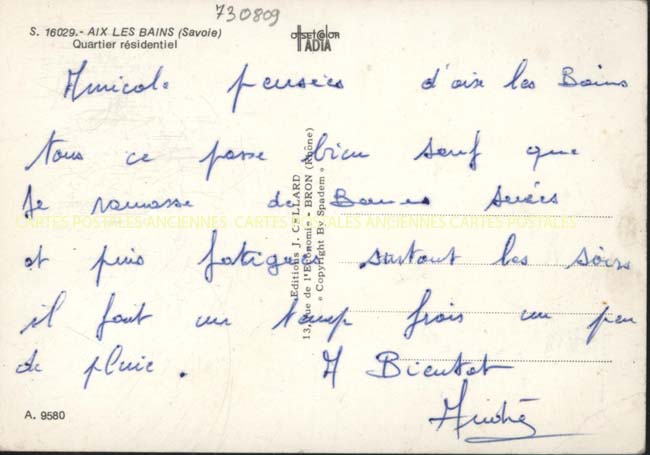 730809
S. 16029.- AIX LES BAINS (Savoie)
Quartier résidentiel
OFFSETCOLOR
IADIA
Amicale pensées d'aix les Bains
tous ce passe bien sauf que
Je ramasse de Bones suées
et puis fatigues surtout les soirs
il fait un temp frais un peu
de pluie. A Bientot
André
Editions J. CELLARD
13, Rue de l'Economie - BRON (Rhône)
« Copyright By Spadem »
CARTES POSTALES ANCIENNES CARTES POSTALES ANCIENNES CARTES POSTALES
A. 9580